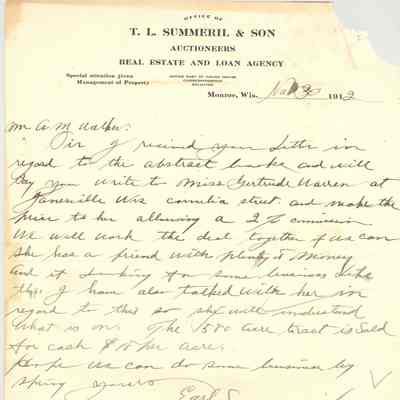 OFFICE OF
T. L. SUMMERIL & SON
AUCTIONEERS
REAL ESTATE AND LOAN AGENCY
Special attention given
Management of Property
OFFICE EAST OF COURT HOUSE
CORRESPONDENCE
SOLICITED
Monroe, Wis. 30 1912
Mr A. M. Walker:
Sir I recived your letter in
regard to the abstract books and will
say you write to Miss Gertrude Warren at
Janesville Wis cornelia street. and make the
price to her allowing a 2% comission
We will work the deal together if we can
she has a friend with plenty of money
and is looking for some business like
this. I have also talked with her in
regard to this so she will understand
What is on. The 1580 acre tract is sold
for cash $15 per acre.
Hope we can do some business by
spring yours
Earl